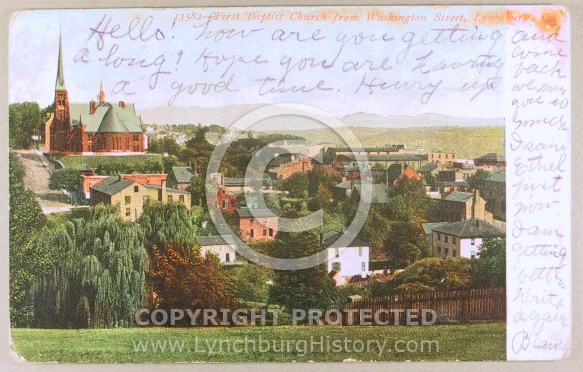 13582-First Baptist Church from Washington Street, Lynchburg
Hello! how are you getting
a long! Hope you are having
a good time. Hurry up
and
come
back
we miss
you so
much
I saw
Ethel
just
now
I am
getting
better
Write
again
COPYRIGHT PROTECTED
www.LynchburgHistory.com